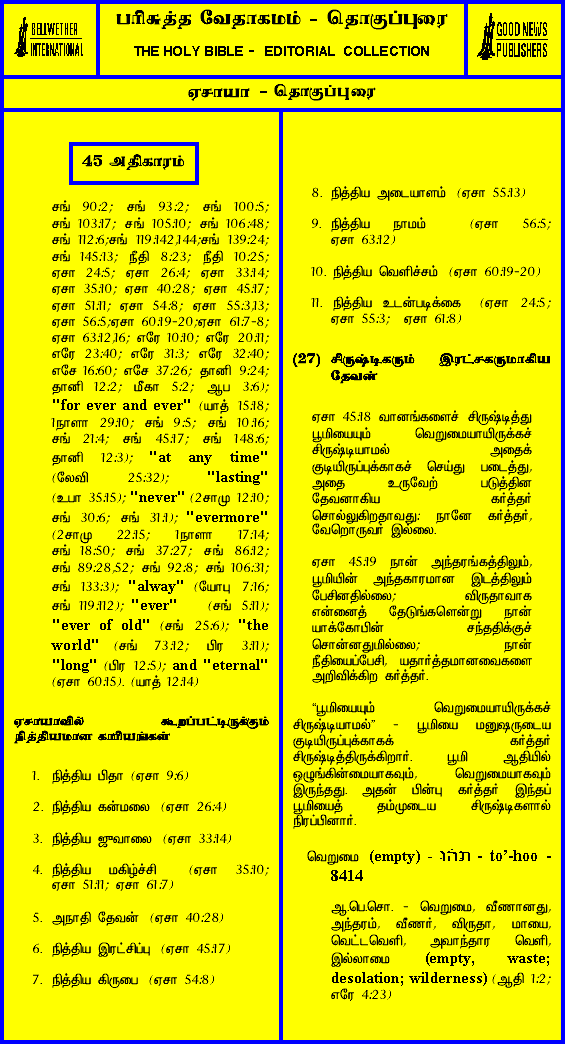 BELLWETHER
INTERNATIONAL
பரிசுத்த வேதாகமம் - தொகுப்புரை
THE HOLY BIBLE - EDITORIAL COLLECTION
GOOD NEWS
PUBLISHERS
ஏசாயா - தொகுப்புரை
45 அதிகாரம்
சங் 90:2; சங் 93:2; சங் 100:5;
சங் 103:17; சங் 105:10; சங் 106:48;
சங் 112:6;சங் 119:142,144;சங் 139:24;
சங் 145:13; நீதி 8:23; நீதி 10:25;
ஏசா 24:5; ஏசா 26:4; ஏசா 33:14;
ஏசா 35:10; ஏசா 40:28; ஏசா 45:17;
ஏசா 51:11; ஏசா 54:8; ஏசா 55:3,13;
ஏசா 56:5;ஏசா 60:19-20;ஏசா 61:7-8;
ஏசா 63:12,16; எரே 10:10; எரே 20:11;
எரே 23:40; எரே 31:3; எரே 32:40;
எசே 16:60; எசே 37:26; தானி 9:24;
தானி 12:2; மீகா 5:2; ஆப 3:6);
"for ever and ever" (யாத் 15:18;
1நாளா 29:10; சங் 9:5; சங் 10:16;
சங் 21:4; சங் 45:17; சங் 148:6;
தானி 12:3); "at any time"
(லேவி 25:32); "lasting"
(உபா 35:15); "never" (2சாமு 12:10;
சங் 30:6; சங் 31:1); "evermore"
(2சாமு 22:15; 1நாளா 17:14;
சங் 18:50; சங் 37:27; சங் 86:12;
சங் 89:28,52; சங் 92:8; சங் 106:31;
சங் 133:3); "alway" (யோபு 7:16;
சங் 119:112); "ever" (சங் 5:11);
"ever of old" (சங் 25:6); "the
world" (சங் 73:12; பிர 3:11);
"long" (பிர 12:5); and "eternal"
(ஏசா 60:15). (யாத் 12:14)
ஏசாயாவில் கூறப்பட்டிருக்கும்
நித்தியமான காரியங்கள்
1. நித்திய பிதா (ஏசா 9:6)
2. நித்திய கன்மலை (ஏசா 26:4)
3. நித்திய ஜுவாலை (ஏசா 33:14)
4. நித்திய மகிழ்ச்சி (ஏசா 35:10;
ஏசா 51:11; ஏசா 61:7)
5. அநாதி தேவன் (ஏசா 40:28)
6. நித்திய இரட்சிப்பு (ஏசா 45:17)
7. நித்திய கிருபை (ஏசா 54:8)
8. நித்திய அடையாளம் (ஏசா 55:13)
9. நித்திய நாமம் (ஏசா 56:5;
ஏசா 63:12)
10. நித்திய வெளிச்சம் (ஏசா 60:19-20)
11. நித்திய உடன்படிக்கை (ஏசா 24:5;
ஏசா 55:3; ஏசா 61:8)
(27) சிருஷ்டிகரும் இரட்சகருமாகிய
தேவன்
ஏசா 45:18 வானங்களைச் சிருஷ்டித்து
பூமியையும் வெறுமையாயிருக்கச்
சிருஷ்டியாமல் அதைக்
குடியிருப்புக்காகச் செய்து படைத்து,
அதை உருவேற் படுத்தின
தேவனாகிய கர்த்தர்
சொல்லுகிறதாவது: நானே கர்த்தர்,
வேறொருவர் இல்லை.
ஏசா 45:19 நான் அந்தரங்கத்திலும்,
பூமியின் அந்தகாரமான இடத்திலும்
பேசினதில்லை; விருதாவாக
என்னைத் தேடுங்களென்று நான்
யாக்கோபின் சந்ததிக்குச்
சொன்னதுமில்லை; நான்
நீதியைப்பேசி, யதார்த்தமானவைகளை
அறிவிக்கிற கர்த்தர்.
“பூமியையும் வெறுமையாயிருக்கச்
சிருஷ்டியாமல்” - பூமியை மனுஷருடைய
குடியிருப்புக்காகக் கர்த்தர்
சிருஷ்டித்திருக்கிறார். பூமி ஆதியில்
ஒழுங்கின்மையாகவும், வெறுமையாகவும்
இருந்தது. அதன் பின்பு கர்த்தர் இந்தப்
பூமியைத் தம்முடைய சிருஷ்டிகளால்
நிரப்பினார்.
வெறுமை (empty) - תּהוּ - to’-hoo -
8414
ஆ.பெ.சொ. - வெறுமை, வீணானது,
அந்தரம், வீணர், விருதா, மாயை,
வெட்டவெளி, அவாந்தார வெளி,
இல்லாமை (empty, waste;
desolation; wilderness) (ஆதி 1:2;
எரே 4:23)